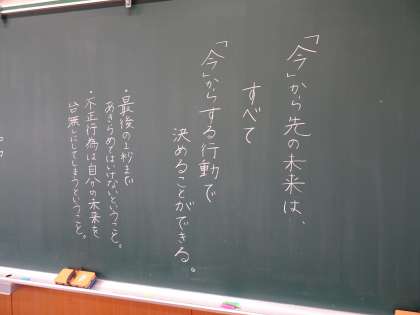 「今」から先の未来は、
すべて
「今」からする行動で
決めることができる。
・最後の1秒まで
あきらめてはいけないということ。
・不正行為は自分の未来を
台無しにしてしまうということ。